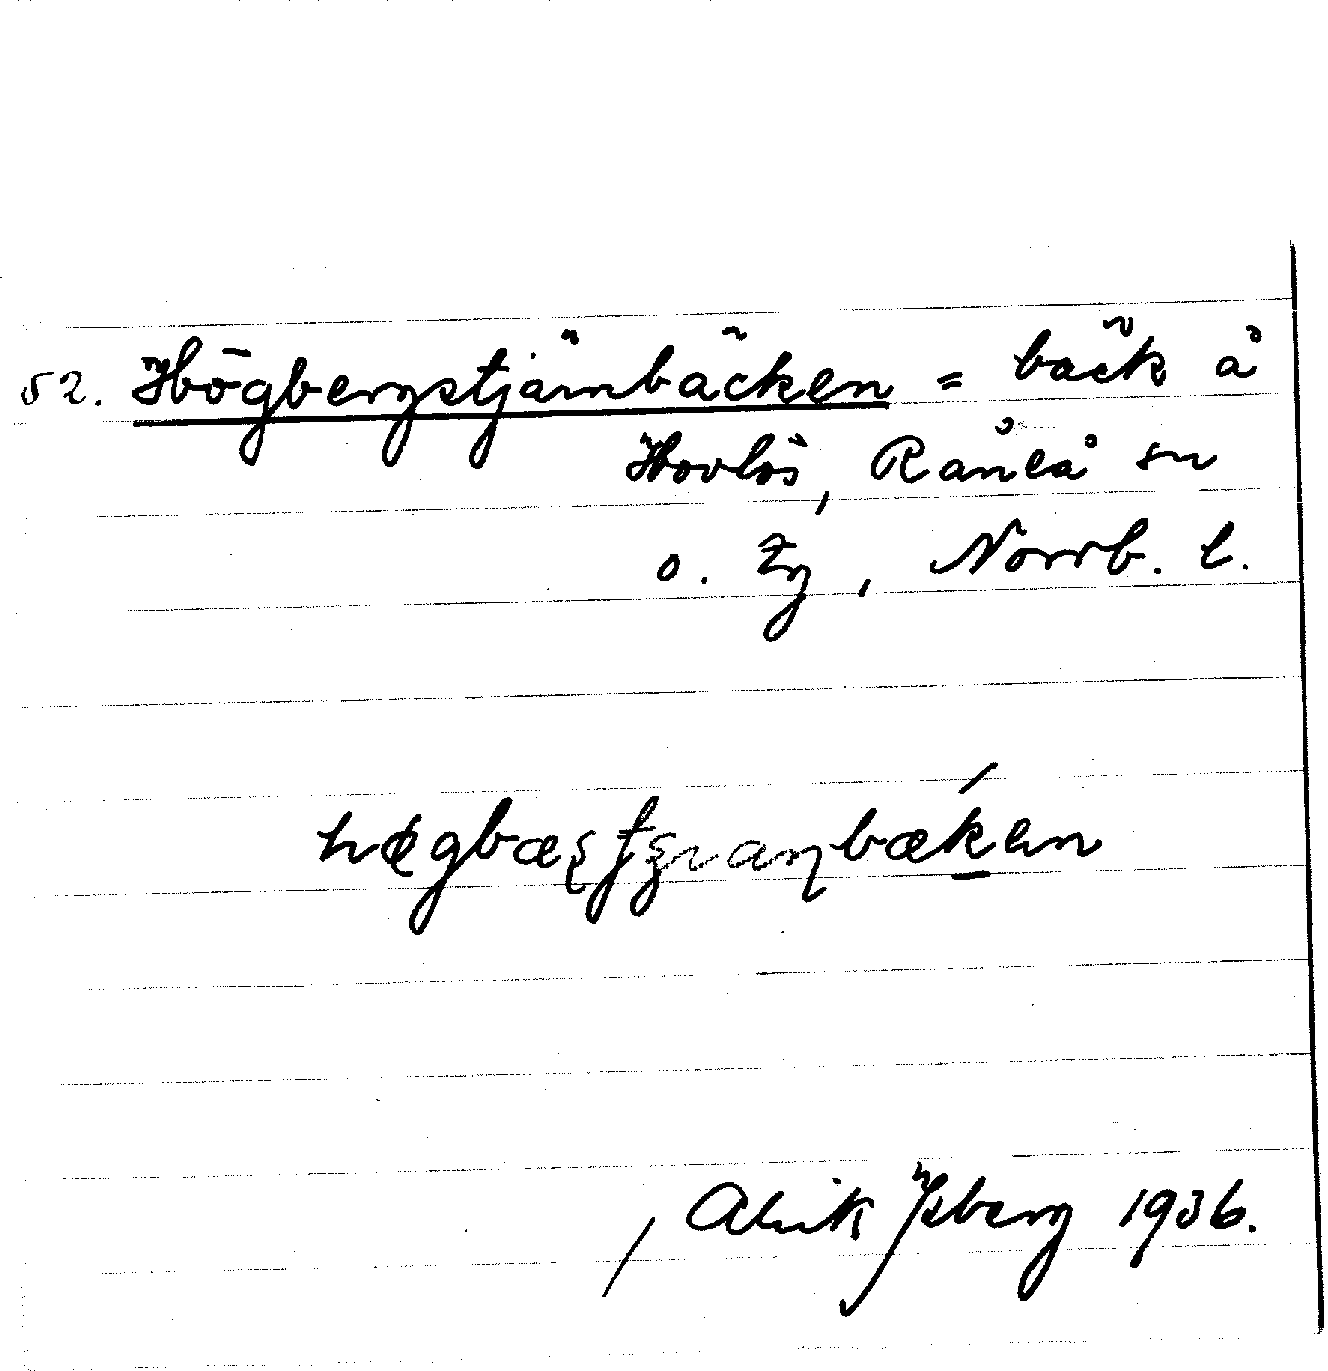 52. Högbergstjärnbäcken = bäck å
Hovlös, Råneå sn
o. tg, Norrb. l.
Alrik Ysberg 1936.